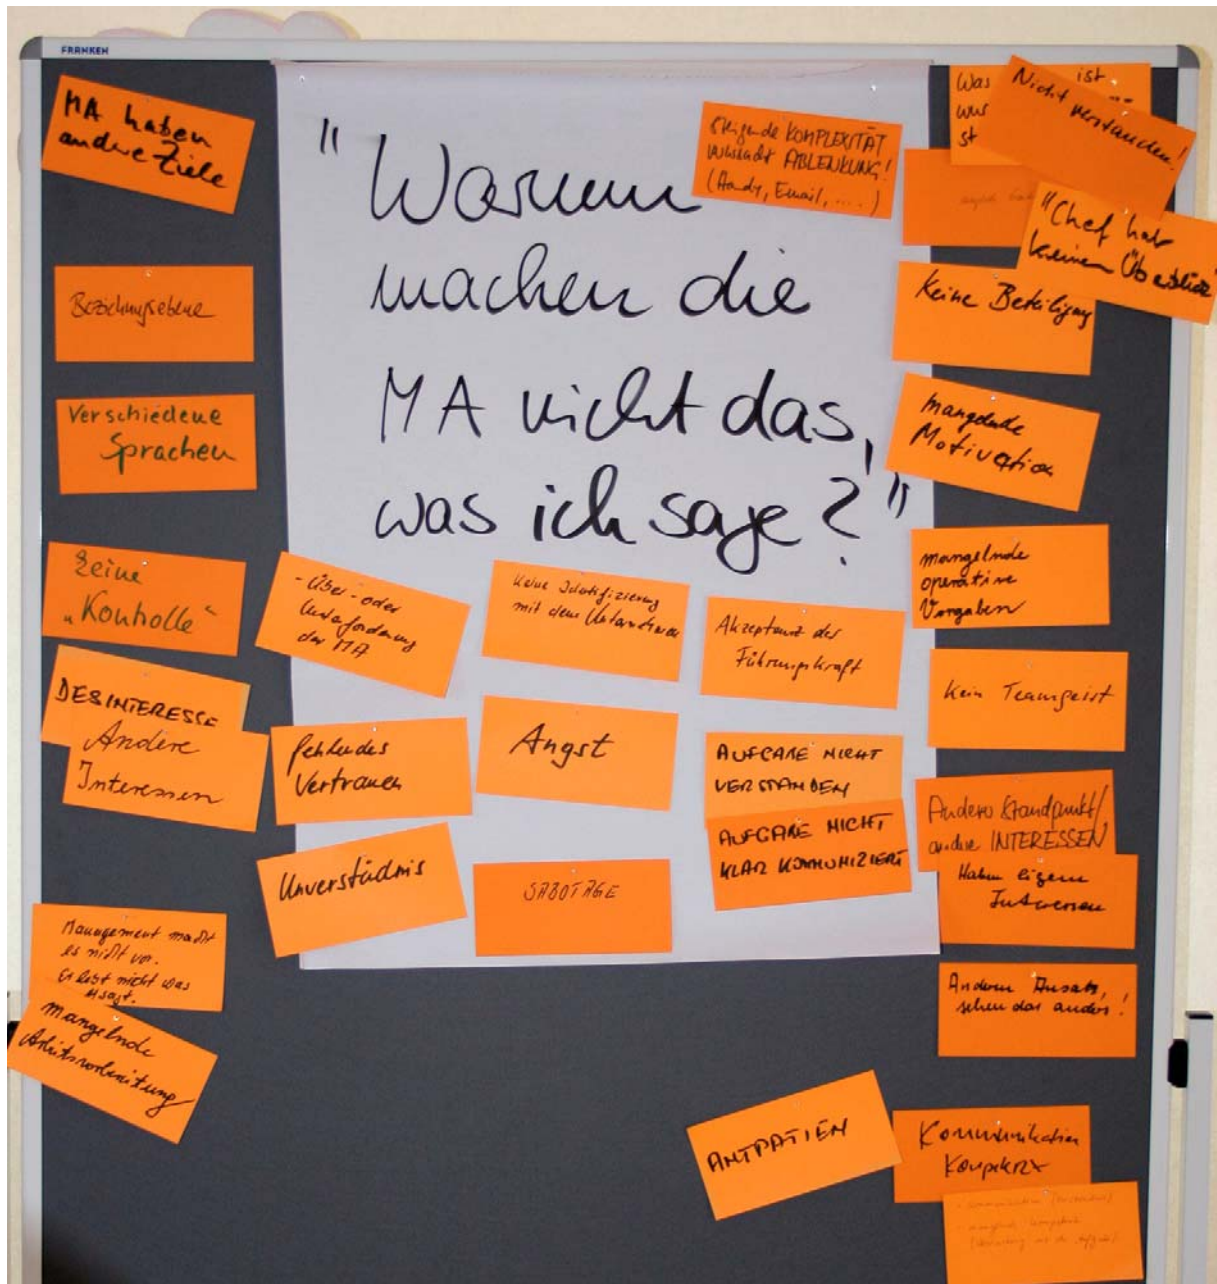 FRANKEN
"Warum
machen die
MA nicht das,
was ich sage?"
MA haben
andere Ziele
Beziehungsebene
Verschiedene
Sprachen
Keine
"Kontrolle"
DESINTERESSE
Andere
Interessen
Management macht
es nicht vor.
Er lebt nicht was
er sagt.
mangelnde
Arbeitsvorbereitung
- Über- oder
Unterforderung
der MA
fehlendes
Vertrauen
Unverständnis
Keine Identifizierung
mit dem Unternehmen
Angst
SABOTAGE
steigende KOMPLEXITÄT
verursacht ABLENKUNG!
(Handy, Email, ....)
Akzeptanz der
Führungskraft
AUFGABE NICHT
VERSTANDEN
AUFGABE NICHT
KLAR KOMMUNIZIERT
Was ist
st
Nicht verstanden!
"Chef hat
keinen Überblick"
Keine Beteiligung
mangelnde
Motivation
mangelnde
operative
Vorgaben
Kein Teamgeist
Anderer Standpunkt/
andere INTERESSEN
Haben eigene
Interessen
Anderen Ansatz,
sehen das anders!
ANTPATIEN
Kommunikation
Kompetenz